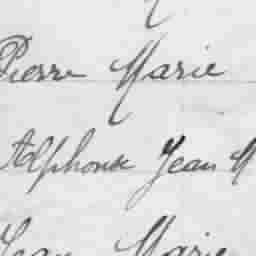 Pierre Marie
Alphonse Jean M
Jean Marie